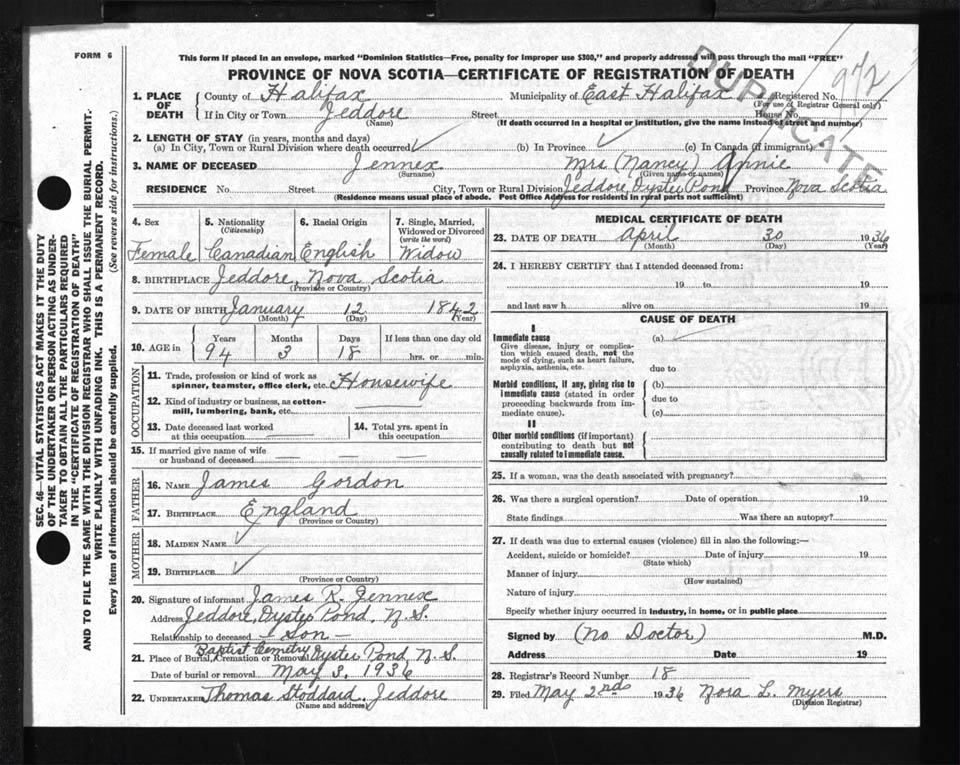 FORM 6
This form if placed in an envelope, marked "Dominion Statistics—Free, penalty for improper use $300," and properly addressed will pass through the mail "FREE"
PROVINCE OF NOVA SCOTIA—CERTIFICATE OF REGISTRATION OF DEATH
DUPLICATE
972
SEC. 46—VITAL STATISTICS ACT MAKES IT THE DUTY
OF THE UNDERTAKER OR PERSON ACTING AS UNDER-
TAKER TO OBTAIN ALL THE PARTICULARS REQUIRED
IN THE "CERTIFICATE OF REGISTRATION OF DEATH"
AND TO FILE THE SAME WITH THE DIVISION REGISTRAR WHO SHALL ISSUE THE BURIAL PERMIT.
WRITE PLAINLY WITH UNFADING INK. THIS IS A PERMANENT RECORD.
Every item of information should be carefully supplied. (See reverse side for instructions.)
1. PLACE OF DEATH County of Halifax Municipality of East Halifax Registered No.
(For use of Registrar General only)
If in City or Town Jeddore Street House No.
(Name) (If death occurred in a hospital or institution, give the name instead of street and number)
2. LENGTH OF STAY (in years, months and days)
(a) In City, Town or Rural Division where death occurred ✓ (b) In Province ✓ (c) In Canada (if immigrant)
3. NAME OF DECEASED Jennex Mrs (Nancy) Annie
(Surname) (Given name or names)
RESIDENCE No. Street City, Town or Rural Division Jeddore, Oyster Pond Province Nova Scotia
(Residence means usual place of abode. Post Office Address for residents in rural parts not sufficient)
4. Sex Female
5. Nationality (Citizenship) Canadian
6. Racial Origin English
7. Single, Married, Widowed or Divorced (write the word) Widow
8. BIRTHPLACE Jeddore, Nova Scotia
(Province or Country)
9. DATE OF BIRTH January 12 1842
(Month) (Day) (Year)
10. AGE in Years 94 Months 3 Days 18 If less than one day old hrs. or min.
OCCUPATION
11. Trade, profession or kind of work as spinner, teamster, office clerk, etc. Housewife
12. Kind of industry or business, as cotton-mill, lumbering, bank, etc. —
13. Date deceased last worked at this occupation
14. Total yrs. spent in this occupation
15. If married give name of wife or husband of deceased — — —
FATHER
16. NAME James Gordon
17. BIRTHPLACE England
(Province or Country)
MOTHER
18. MAIDEN NAME ✓
19. BIRTHPLACE ✓
(Province or Country)
20. Signature of informant James R. Jennex
Address Jeddore, Oyster Pond, N.S.
Relationship to deceased - Son -
21. Place of Burial, Cremation or Removal Baptist Cemetry Oyster Pond N.S.
Date of burial or removal May 3, 1936
22. UNDERTAKER Thomas Stoddard, Jeddore
(Name and address)
MEDICAL CERTIFICATE OF DEATH
23. DATE OF DEATH April 30 1936
(Month) (Day) (Year)
24. I HEREBY CERTIFY that I attended deceased from:
19 to 19
and last saw h alive on 19
CAUSE OF DEATH
I
Immediate cause (a)
Give disease, injury or complication which caused death, not the mode of dying, such as heart failure, asphyxia, asthenia, etc.
due to
Morbid conditions, if any, giving rise to immediate cause (stated in order proceeding backwards from immediate cause).
(b)
due to
(c)
II
Other morbid conditions (if important) contributing to death but not causally related to immediate cause.
25. If a woman, was the death associated with pregnancy?
26. Was there a surgical operation? Date of operation 19
State findings Was there an autopsy?
27. If death was due to external causes (violence) fill in also the following:—
Accident, suicide or homicide? Date of injury 19
(State which)
Manner of injury
(How sustained)
Nature of injury
Specify whether injury occurred in industry, in home, or in public place
Signed by (No Doctor) M.D.
Address Date 19
28. Registrar's Record Number 18
29. Filed May 2nd 1936 Nora L. Myers
(Division Registrar)